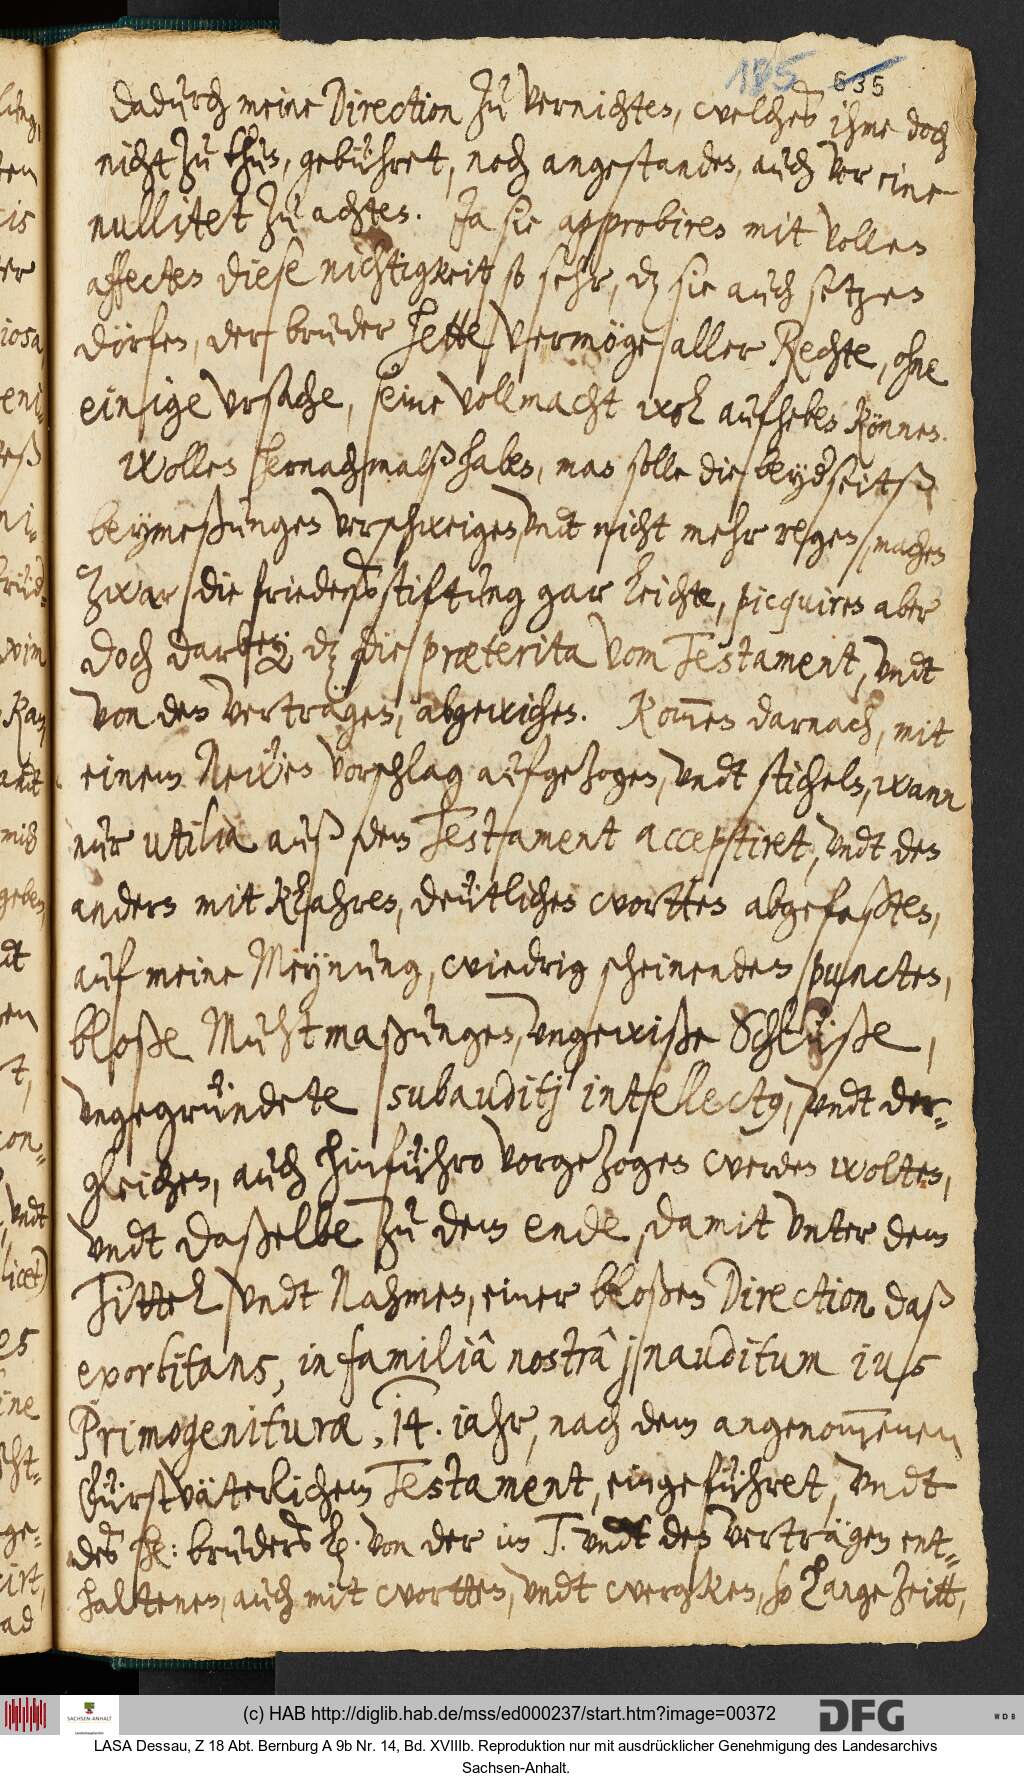 185 635
dadurch meine Direction zu vernichten, welches ihme doch
nicht zu thun, gebühret, noch angestanden, auch vor eine
nullitet zu achten. Ja sie approbiren mit vollen
affecten diese nichtigkeit so sehr, dz sie auch setzen
dörfen, der bruder hette vermöge aller Rechte, ohne
einige vrsache, seine vollmacht wol aufheben können.
Wollen hernachmalß haben, man solle die beyderseitß
beymeßungen verschweigen, vndt nicht mehr regen, machen
zwar die friedensstiftung gar leichte, picquiren aber
doch darbey dz die præterita vom Testament, vndt
von den verträgen, abgewichen. Kom̄en darnach, mit
einem Newen vorschlag aufgezogen, vndt sticheln, wann
nur utilia auß dem Testament acceptiret, vndt den
andern mit klahren, deutlichen wortten abgefaßten,
auf meine Meynung, wiedrig scheinenden puncten,
bloße Muhtmaßungen, vngewiße Schlüße,
vngegründete subauditj intellectq, vndt der-
gleichen, auch hinführo vorgezogen werden wolten,
vndt daßelbe zu dem ende, damit vnter dem
Tittel vndt Nahmen, einer bloßen Direction daß
exorbitans, in familiâ nostrâ jnauditum ius
Primogenituræ, 14. iahr, nach dem angenom̄enen
Fürstväterlichem Testament, eingeführet, vndt
des sel: bruders L. von der im T. vndt den verträgen ent-
haltenen, auch mit wortten, vndt wercken, so lange zeitt,
(c) HAB http://diglib.hab.de/mss/ed000237/start.htm?image=00372
SACHSEN-ANHALT
DFG
WDB
LASA Dessau, Z 18 Abt. Bernburg A 9b Nr. 14, Bd. XVIIIb. Reproduktion nur mit ausdrücklicher Genehmigung des Landesarchivs
Sachsen-Anhalt.